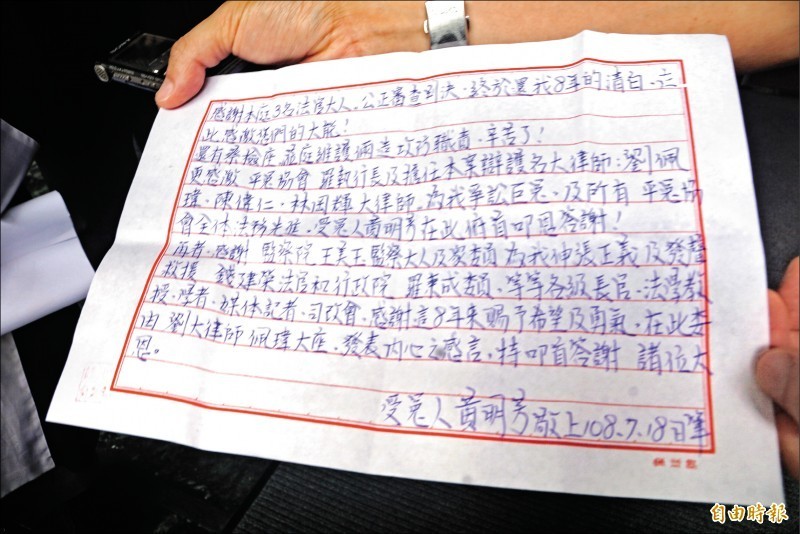 感謝本庭3名法官大人、公正審查判決、終於還我8年的清白、在
此感激您們的大能!
還有蒞檢座 並應維護倆造攻防職責、辛苦了!
更感激 平冤協會 羅執行長及擔任本案辯護名大律師:劉佩
瑋、陳偉仁、林同輝大律師、為我爭訟巨冤、及所有 平冤協
會全体法務先進、受冤人黃明芳在此俯首叩恩答謝!
再者、感謝 監察院 王美玉監察大人及 為我伸張正義及發聲
救援 錢建榮法官和行政院 羅秉成 、等等各級長官、法學教
授、學者、媒体記者、司改會、感謝這8年來賜予希望及勇氣、在此委
由 劉大律師佩瑋大座、發表內心之感言、特叩首答謝 諸位大
恩。
受冤人黃明芳敬上108.7.18日筆
自由時報